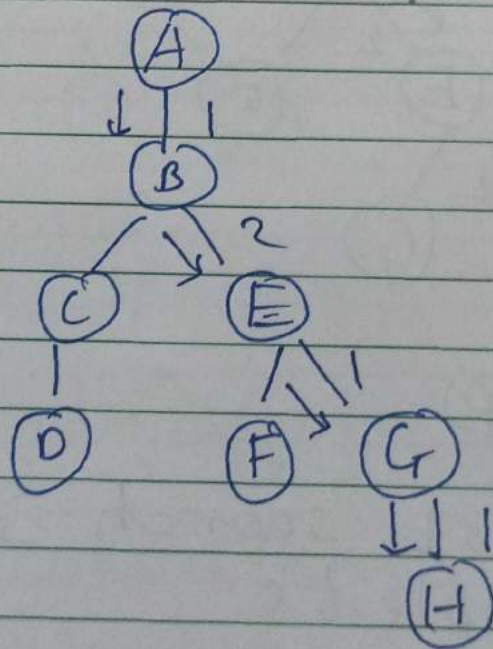 A
1
B
2
C E
1
D F G
1
H